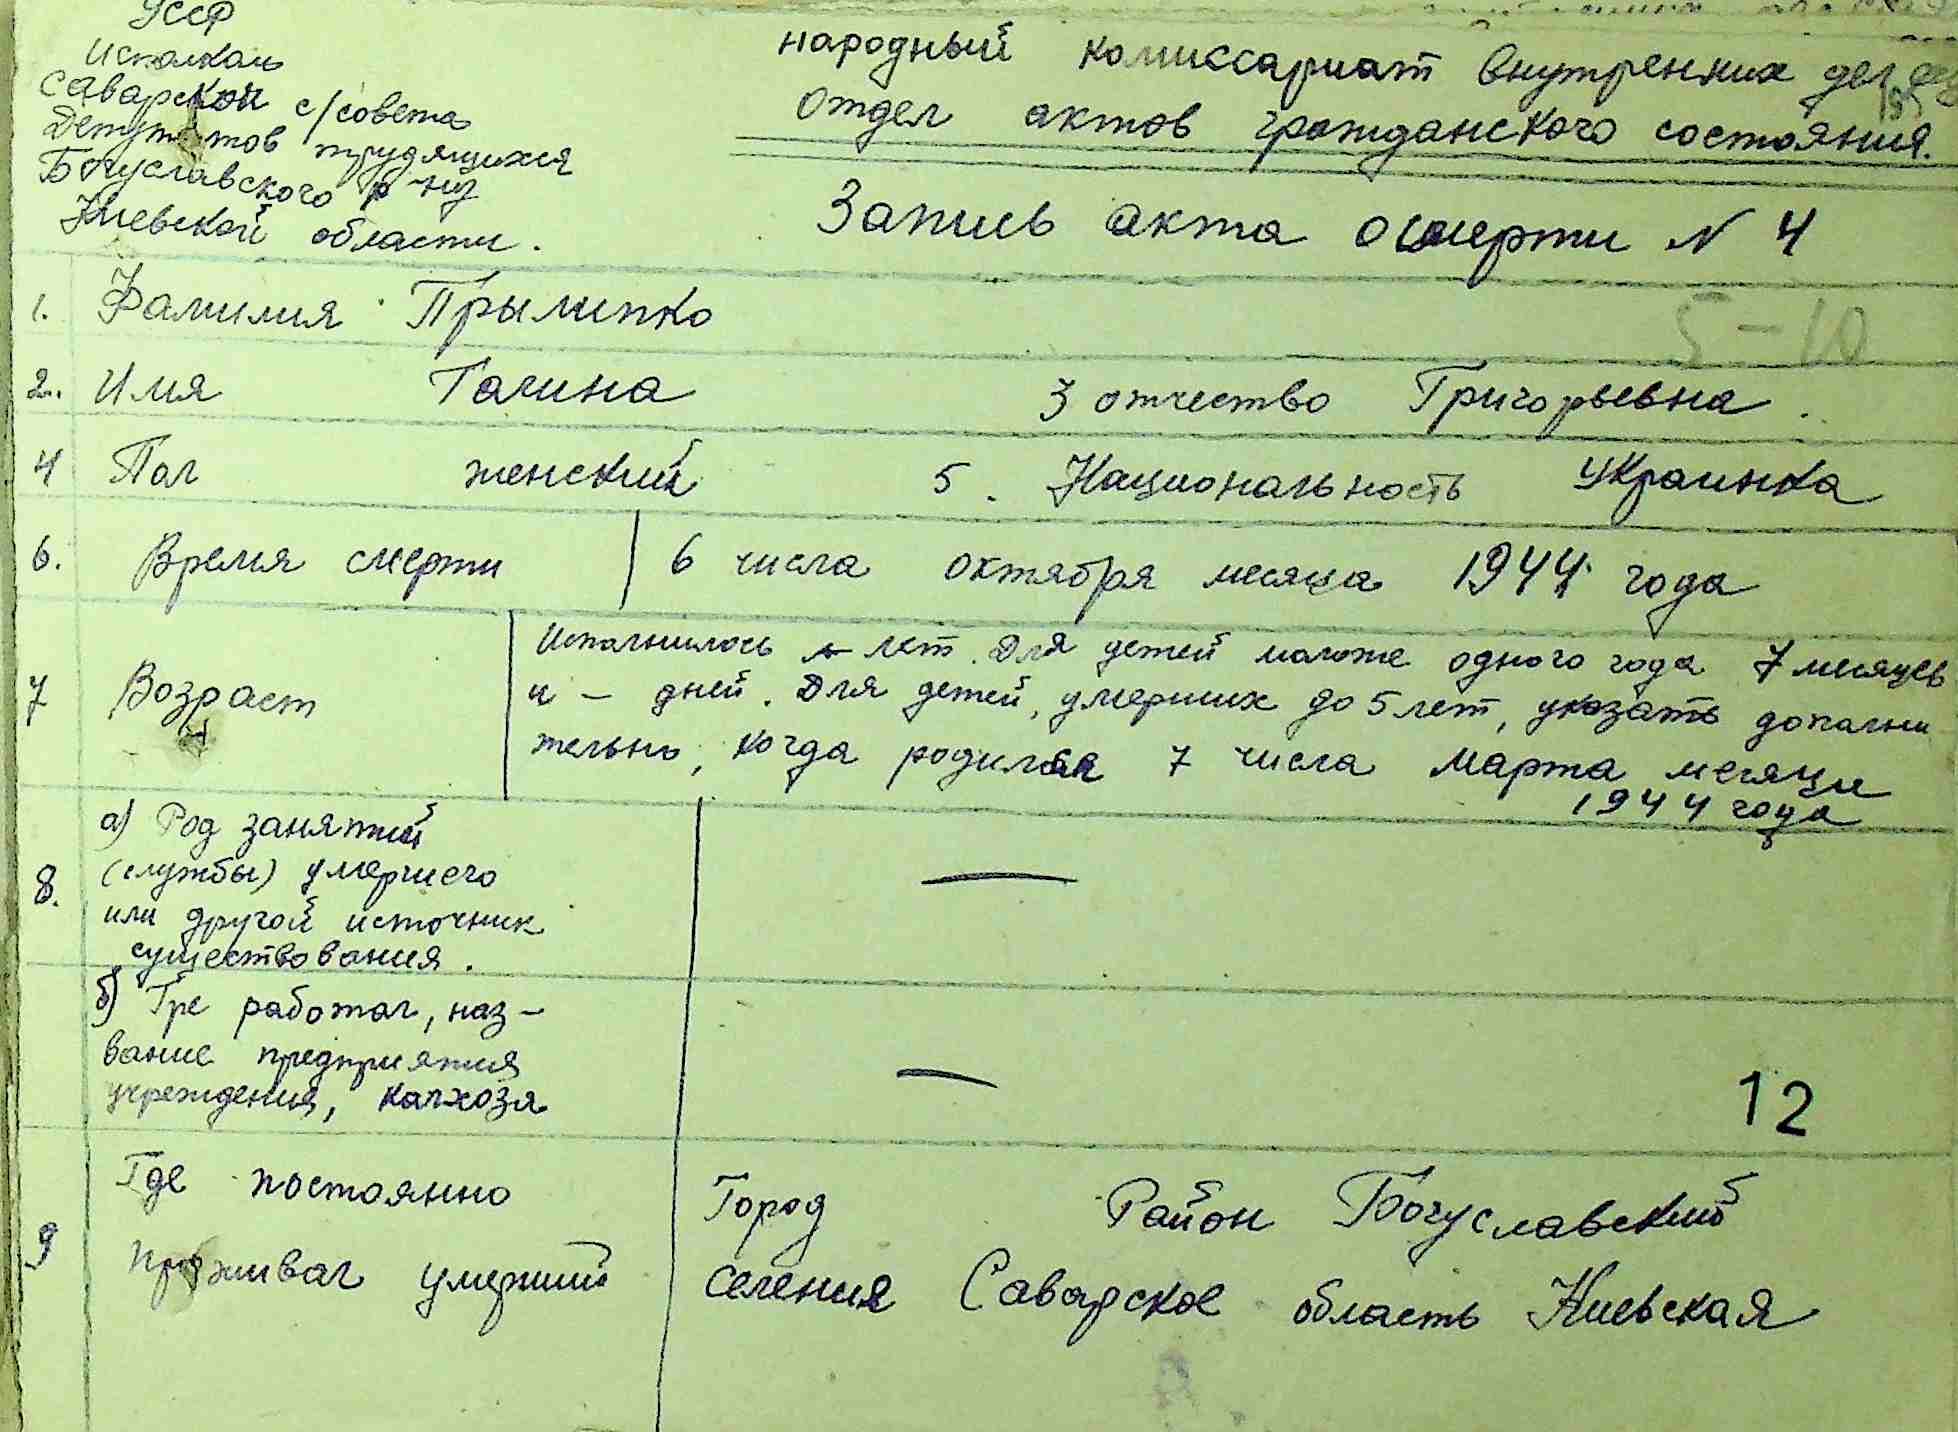 УССР
Исполком
Саварской с/совета
Депутатов трудящихся
Богуславского р-на
Киевской области.
народный комиссариат внутренних дел
отдел актов гражданского состояния.
Запись акта о смерти N 4
1. Фамилия Прылипко
5-10
2. Имя Галина 3 отчество Григорьевна.
4 Пол женский 5. Национальность Украинка
6. Время смерти 6 числа октября месяца 1944 года
7 Возраст
Исполнилось — лет. Для детей моложе одного года 7 месяцев
и — дней. Для детей, умерших до 5 лет, указать дополни
тельно, когда родился 7 числа марта месяца
1944 года
8. а) Род занятий
(службы) умершего
или другой источник
существования.
—
б) Где работал, наз-
вание предприятия
учреждения, колхоза
—
12
9 Где постоянно
проживал умерший
Город Район Богуславский
селения Саварское область Киевская